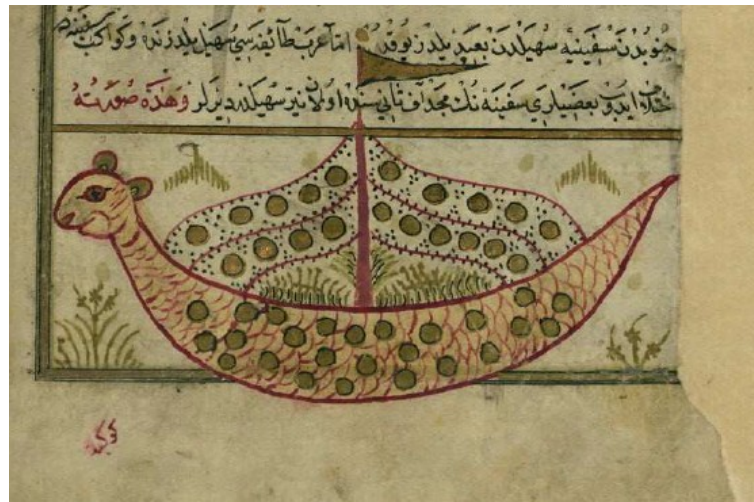 جنوبدن سفينيه سهيلدن بعيد يلدز يوقدر اما عرب طائفه سي سهيل يلدزنده وكواكب سفينه
خلاف ايدوب بعضيلري سفينه نك مجداف ثاني سنده اولان نير سهيلدر ديرلر وهذه صورته